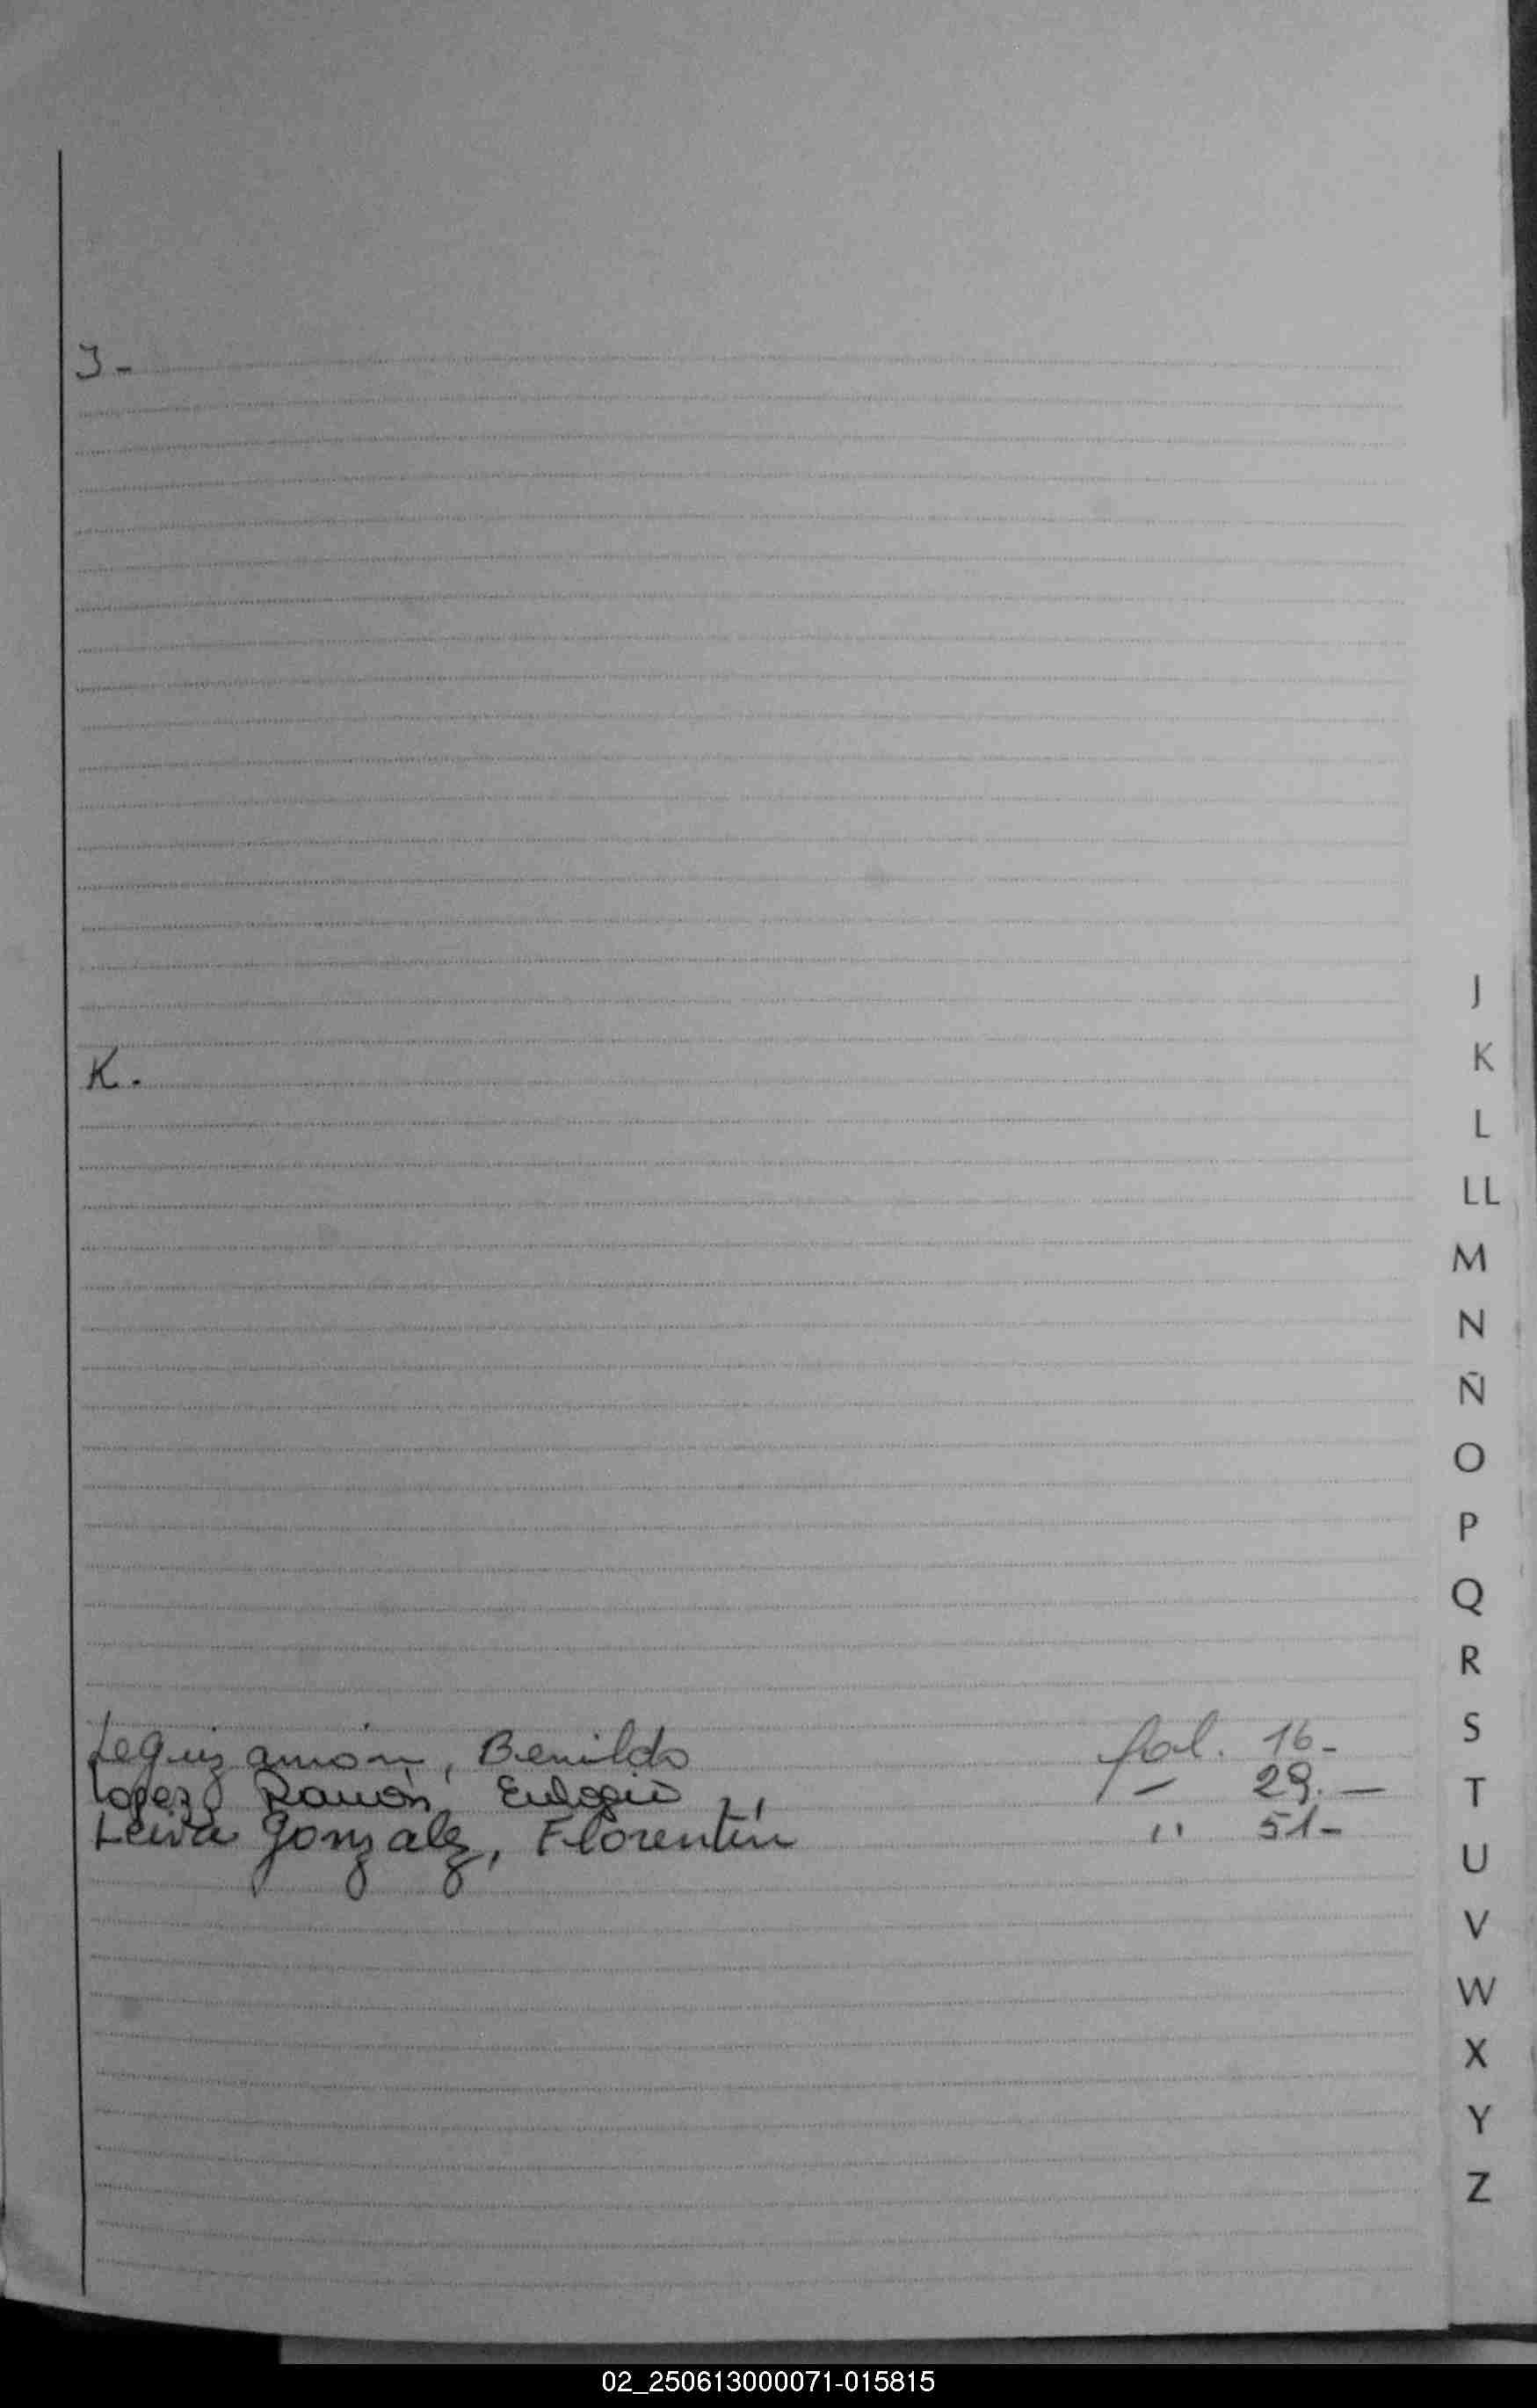 J-
K.
Leguizamón, Benildo fol. 16-
Lopez Ramón, Eulogio — 29.—
Leiva Gonzalez, Florentín " 51-
J
K
L
LL
M
N
Ñ
O
P
Q
R
S
T
U
V
W
X
Y
Z
02_250613000071-015815